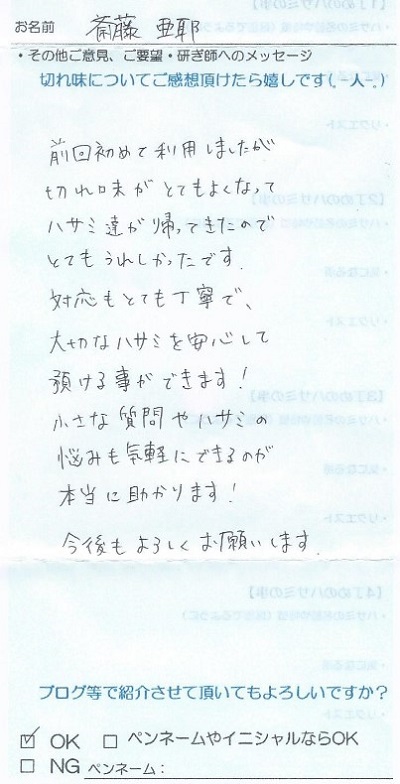 お名前 斎藤 亜耶
・その他ご意見、ご要望・研ぎ師へのメッセージ
切れ味についてご感想頂けたら嬉しです(.-人-.)
前回初めて利用しましたが
切れ味がとてもよくなって
ハサミ達が帰ってきたので
とてもうれしかったです.
対応もとても丁寧で、
大切なハサミを安心して
預ける事ができます!
小さな質問やハサミの
悩みも気軽にできるのが
本当に助かります!
今後もよろしくお願いします.
ブログ等で紹介させて頂いてもよろしいですか?
☑ OK □ ペンネームやイニシャルならOK
□ NG ペンネーム: